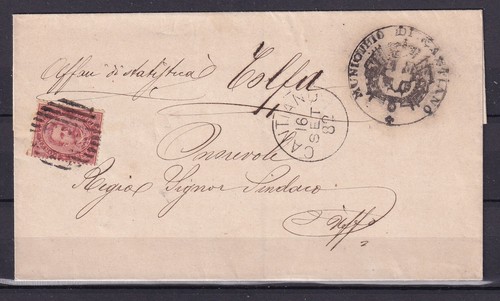 MUNICIPIO DI CANTIANO
Affari di statistica
Tolfa
CANTIANO
16
SET
82
Onorevole
Regio Signor Sindaco
di